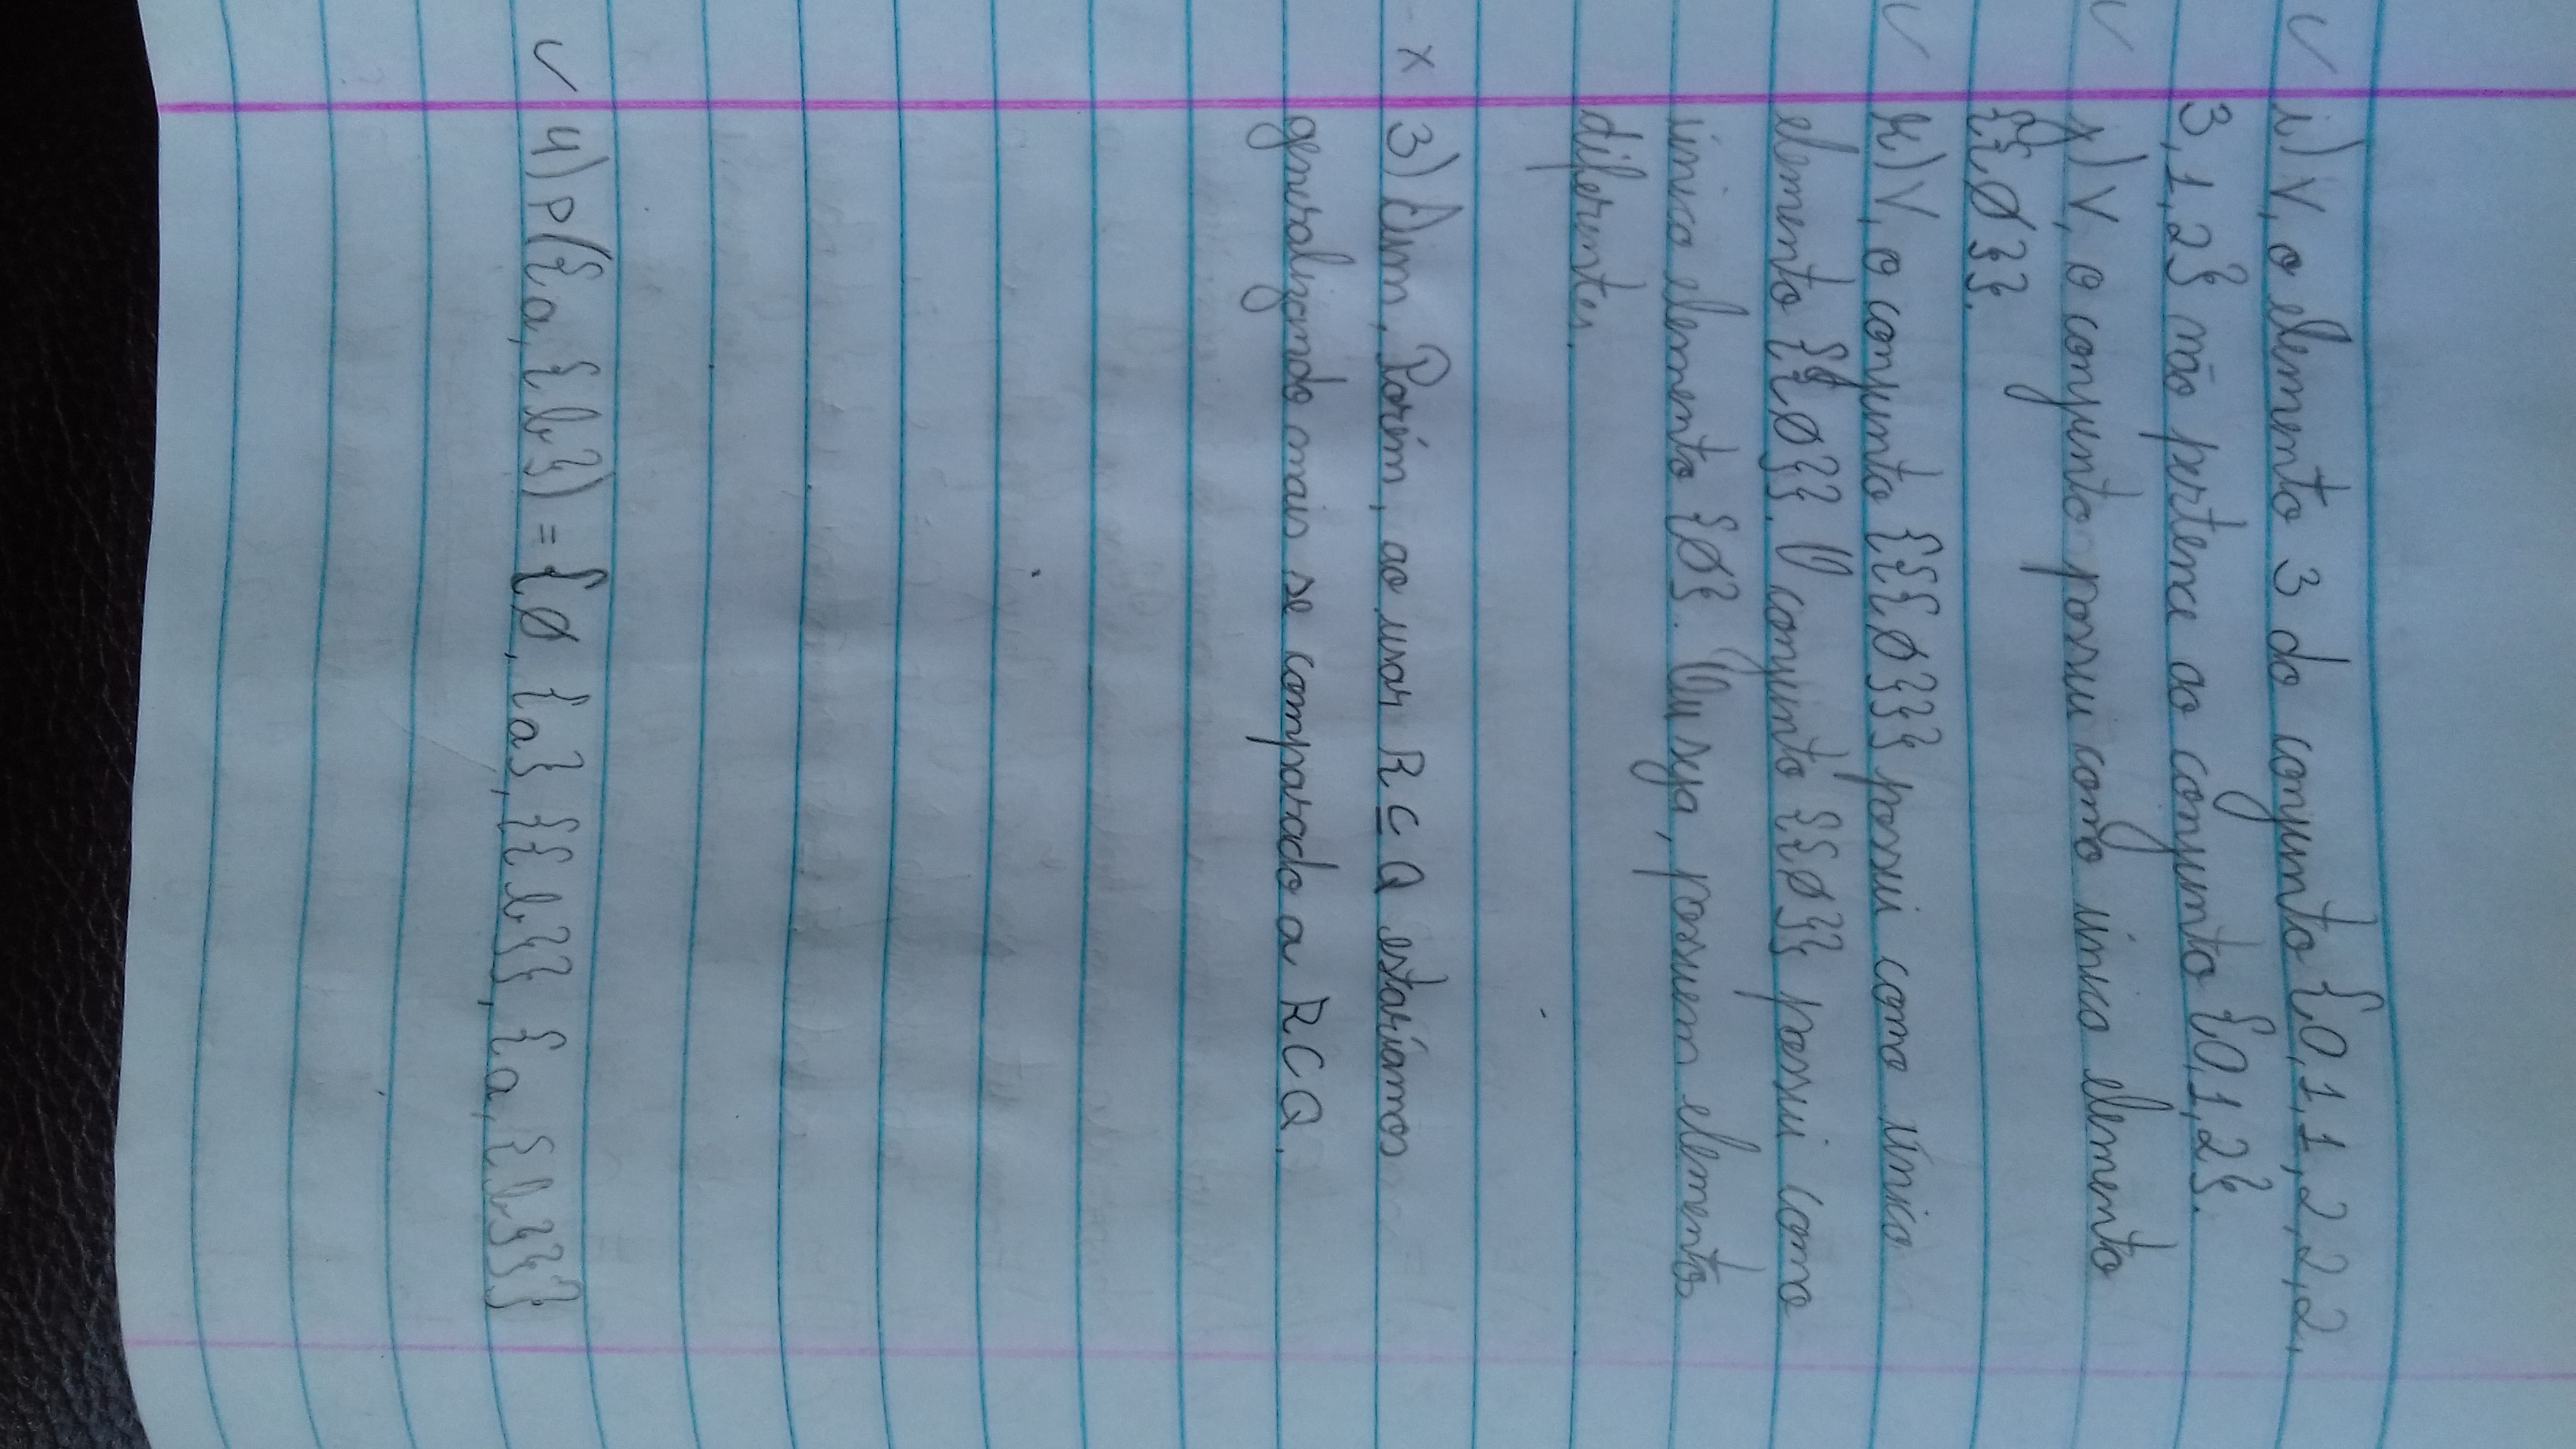 ✓ i) V, o elemento 3 do conjunto {0,1,1,2,2,2,
3,1,2} não pertence ao conjunto {0,1,2}.
✓ j) V, o conjunto possui como único elemento
{{∅}}.
✓ k) V, o conjunto {{{∅}}} possui como único
elemento {{∅}}. O conjunto {{∅}} possui como
único elemento {∅}. Ou seja, possuem elementos
diferentes.
x 3) Sim, Porém, ao usar R ⊆ Q estaríamos
generalizando mais se comparado a R ⊂ Q.
✓ 4) P({a, {b}) = {∅, {a}, {{b}}, {a, {b}}}